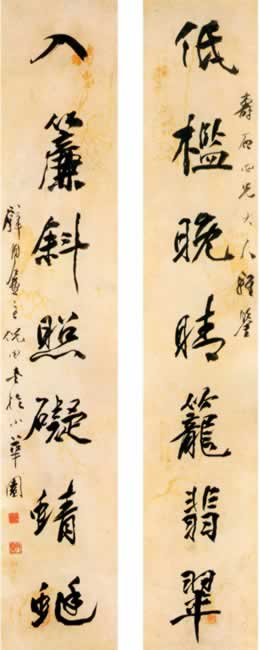 壽石兄大人雅鑒
低檻晚晴籠翡翠
入簾斜照礙蜻蜓
璧月盦主倪田書於小華園